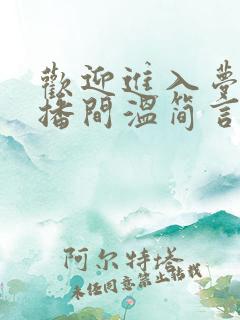 歡迎進入夢
播間溫簡言
阿尔特塔
未经同意禁止转载